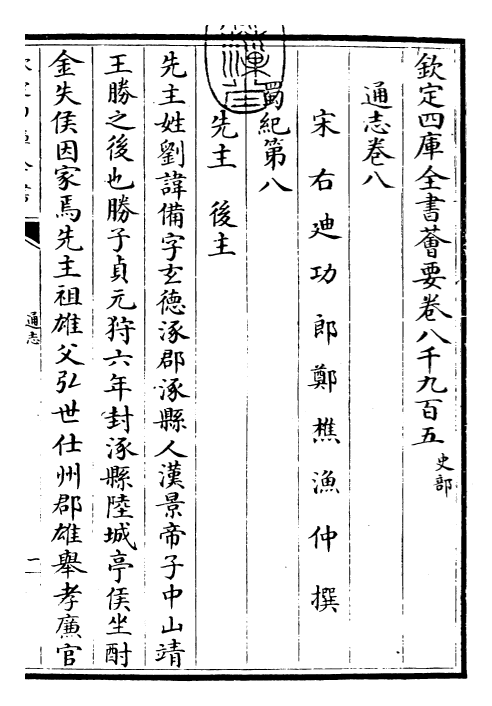 欽定四庫全書薈要卷八千九百五 史部
通志卷八
宋右廸功郎鄭樵漁仲撰
蜀紀第八
先主 後主
先主姓劉諱備字玄德涿郡涿縣人漢景帝子中山靖
王勝之後也勝子貞元狩六年封涿縣陸城亭侯坐酎
金失侯因家焉先主祖雄父弘世仕州郡雄舉孝廉官
通志
一